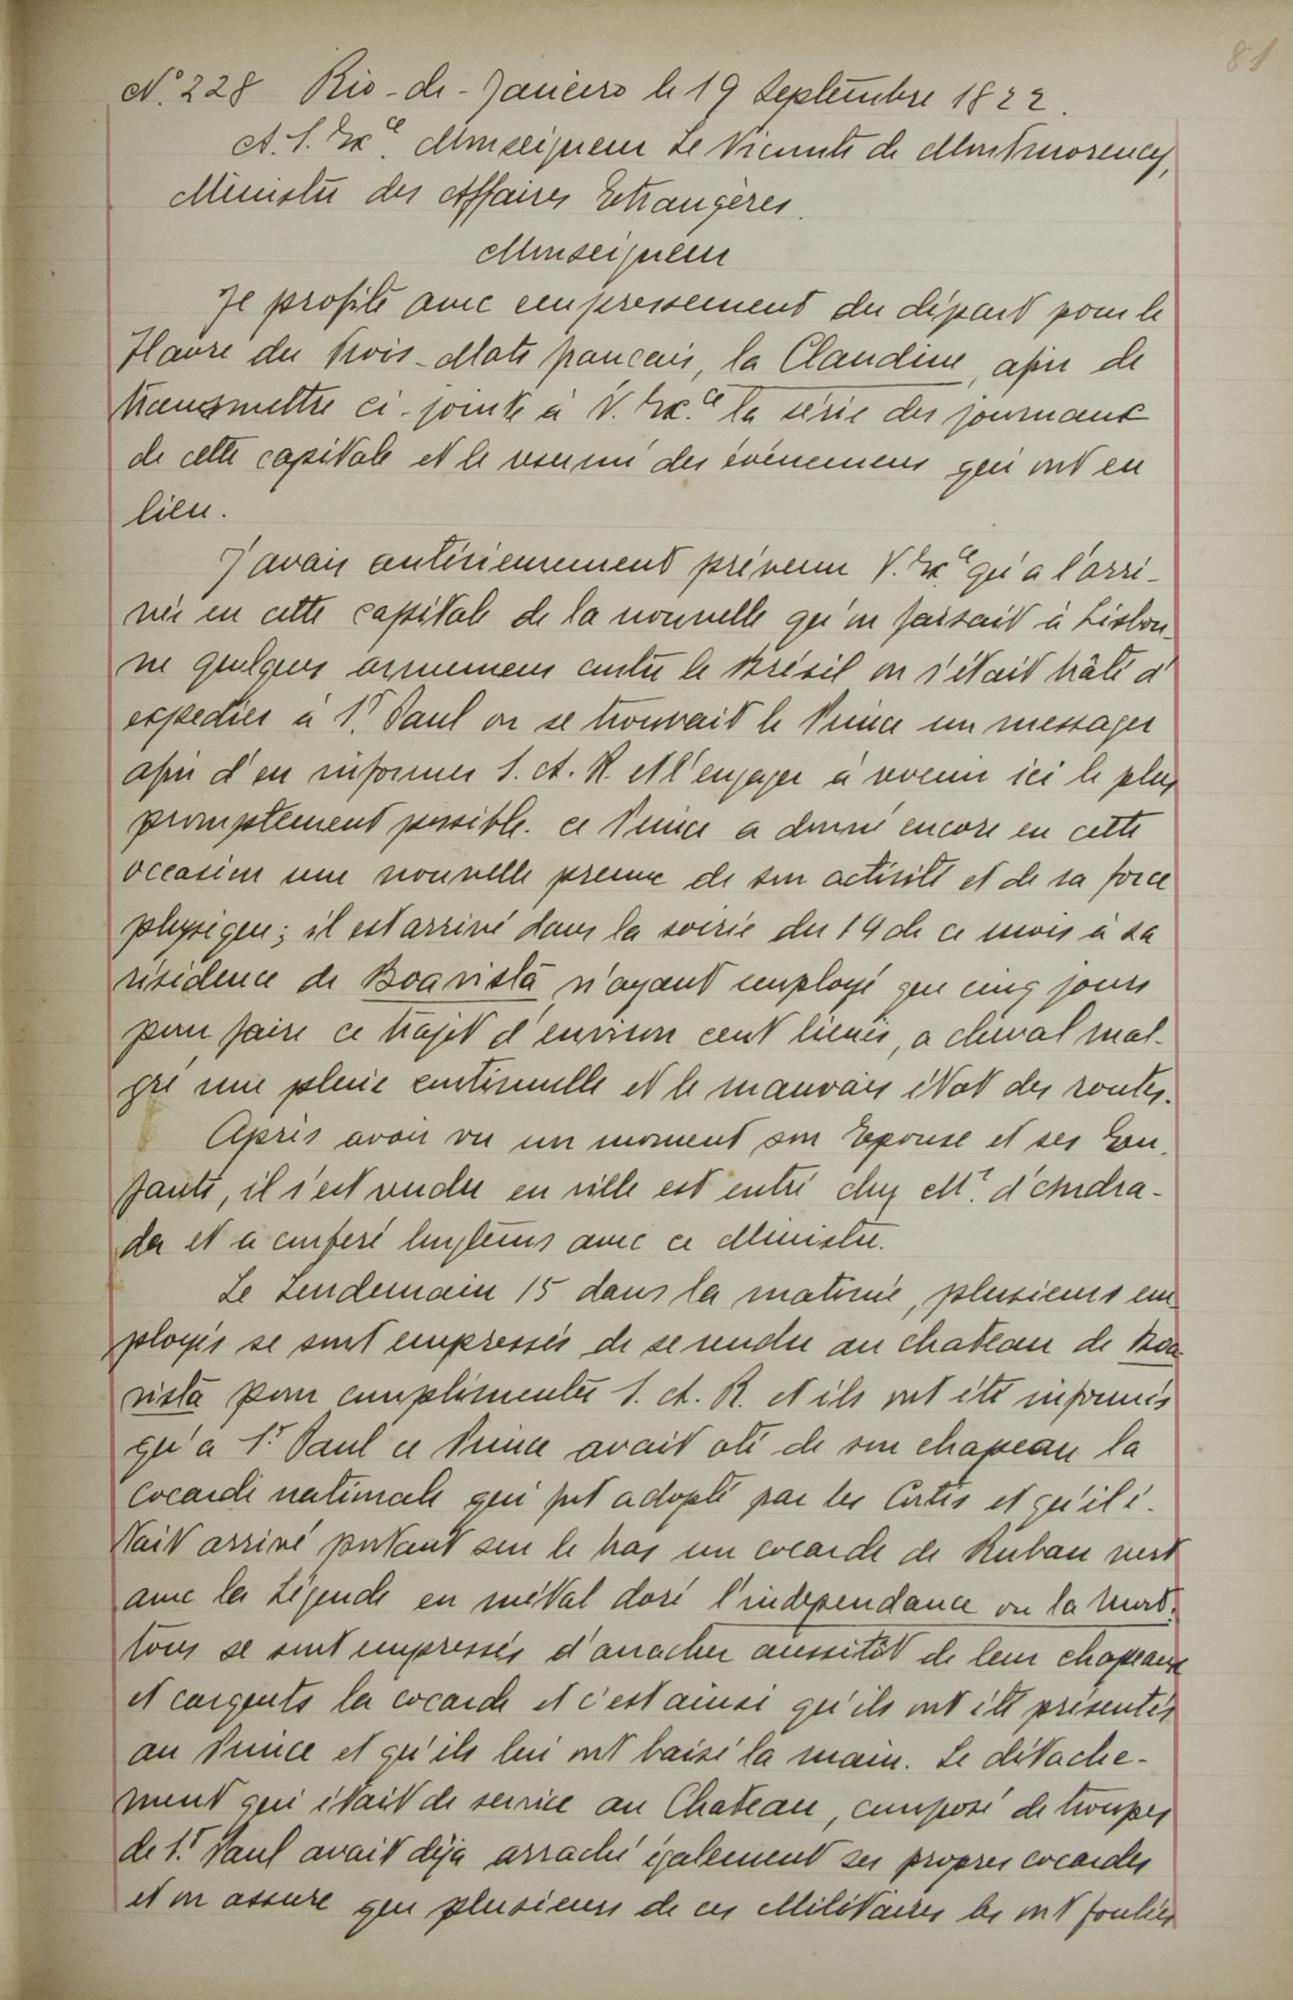 81
N.° 228 Rio-de-Janeiro le 19 Septembre 1822.
A. S. Ex.ce Monseigneur Le Vicomte de Montmorency,
Ministre des Affaires Etrangères.
Monseigneur
Je profite avec empressement du départ pour le
Havre du trois-Mats francais, la Claudine, afin de
transmettre ci-jointe à V. Ex.ce la série des journaux
de cette capitale et le resumé des événemens qui ont eu
lieu.
J'avais antérieurement prévenu V. Ex.ce qu'a l'arri-
vée en cette capitale de la nouvelle qu'on faisait à Lisbon-
ne quelques armemens contre le Brésil on s'était hâté d'
expedier à S.t Paul ou se trouvait le Prince un messager
afin d'en informer S. A. R. et l'engager à revenir ici le plus
promptement possible. ce Prince a donné encore en cette
occasion une nouvelle preuve de son activité et de sa force
physique; il est arrivé dans la soirée du 14 de ce mois à sa
résidence de Boavista n'ayant employé que cinq jours
pour faire ce trajet d'environ cent lieues, a cheval mal-
gré une pluie continuelle et le mauvais état des routes.
Après avoir vu un moment son Epouse et ses En-
fants, il s'est rendu en ville est entré chez M.r d'Andra-
da et a conferé longtems avec ce Ministre.
Le Lendemain 15 dans la matinée, plusieurs em-
ployés se sont empressés de se rendre au chateau de Boa-
vista pour complimenter S. A. R. et ils ont été informés
qu'a S.t Paul ce Prince avait oté de son chapeau la
cocarde nationale qui fut adopté par les Cortès et qu'il é-
tait arrivé portant sur le bras un cocarde de Ruban vert
avec la Légende en métal doré l'independance ou la mort.
tous se sont empressés d'arracher aussitôt de leur chapeaux
et cargents la cocarde et c'est ainsi qu'ils ont été présentés
au Prince et qu'ils lui ont baisé la main. Le détache-
ment qui était de service au Chateau, composé de troupes
de S.t Paul avait déja arraché également ses propres cocardes
et on assure que plusieurs de ces Militaires les ont foulées